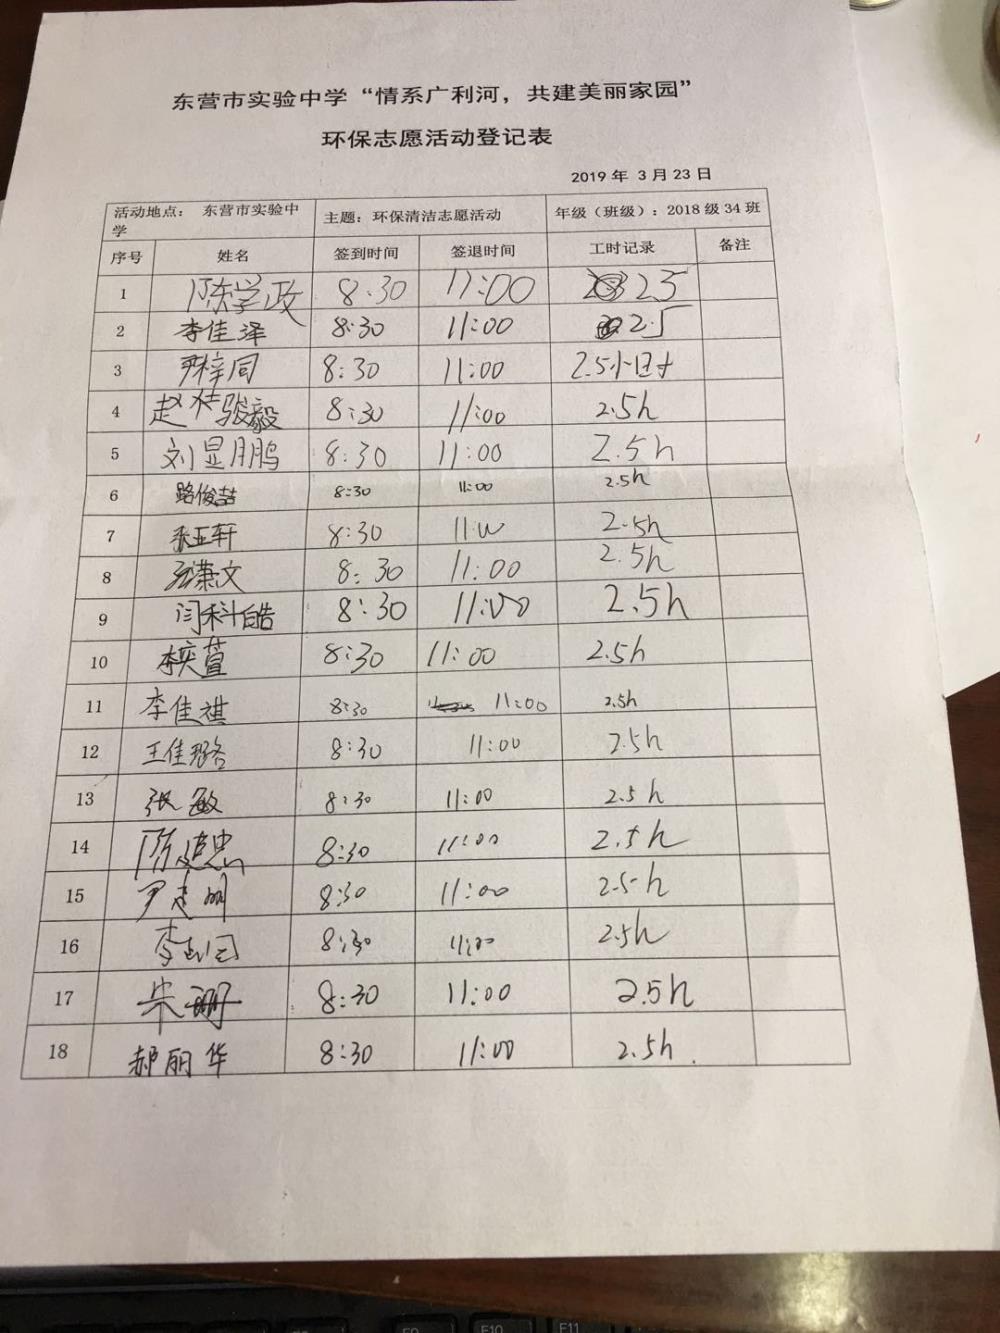 东营市实验中学“情系广利河，共建美丽家园”
环保志愿活动登记表
2019 年 3 月 23 日
活动地点： 东营市实验中学 主题：环保清洁志愿活动 年级（班级）：2018 级 34 班
序号 姓名 签到时间 签退时间 工时记录 备注
1 陈学政 8:30 11:00 2.5
2 李佳泽 8:30 11:00 2.5
3 尹梓同 8:30 11:00 2.5小时
4 赵佳骏毅 8:30 11:00 2.5h
5 刘显鹏 8:30 11:00 2.5h
6 路俊喆 8:30 11:00 2.5h
7 张亚轩 8:30 11:00 2.5h
8 潇文 8:30 11:00 2.5h
9 闫科皓 8:30 11:00 2.5h
10 李奕萱 8:30 11:00 2.5h
11 李佳祺 8:30 11:00 2.5h
12 王佳璐 8:30 11:00 2.5h
13 张敏 8:30 11:00 2.5h
14 陈建忠 8:30 11:00 2.5h
15 尹志明 8:30 11:00 2.5h
16 李 8:30 11:00 2.5h
17 宋珊 8:30 11:00 2.5h
18 郝丽华 8:30 11:00 2.5h.
F9 F10 F11